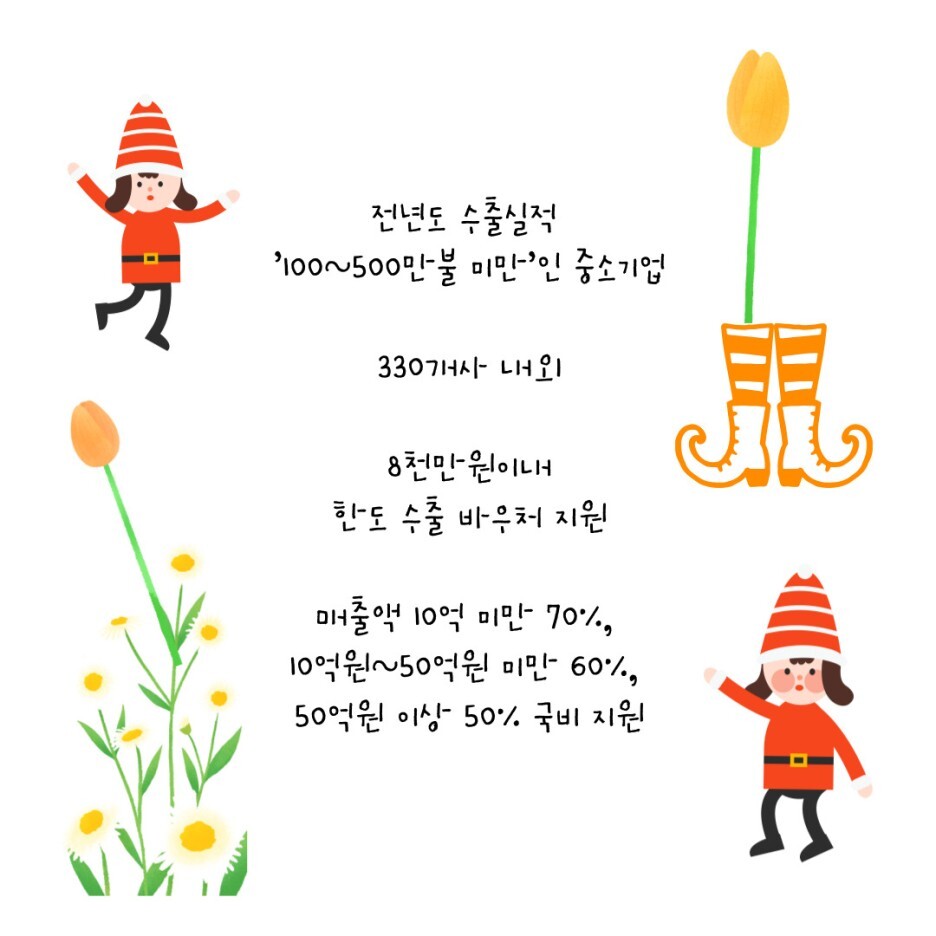 전년도 수출실적
'100~500만불 미만'인 중소기업
330개사 내외
8천만원이내
한도 수출 바우처 지원
매출액 10억 미만 70%,
10억원~50억원 미만 60%,
50억원 이상 50% 국비 지원